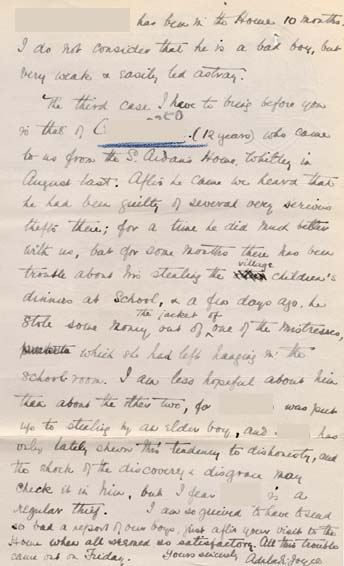 has been in the Home 10 months.
I do not consider that he is a bad boy, but
very weak & easily led astray.
The third case I have to bring before you
is that of C (12 years) who came
to us from the S. Aidan's Home, Whitley in
August last. After he came we heard that
he had been guilty of several very serious
thefts there; for a time he did much better
with us, but for some months there has been
trouble about his stealing the village children's
dinners at School, & a few days ago he
stole some money out of the jacket of one of the Mistresses,
which she had left hanging in the
schoolroom. I am less hopeful about him
than about the other two, for was put
up to stealing by an elder boy, and has
only lately shewn this tendency to dishonesty, and
the shock of the discovery & disgrace may
check it in him, but I fear is a
regular thief. I am so grieved to have to send
so bad a report of our boys, just after your visit to the
Home when all seemed so satisfactory. All this trouble
came out on Friday. Yours sincerely Adela Joyce